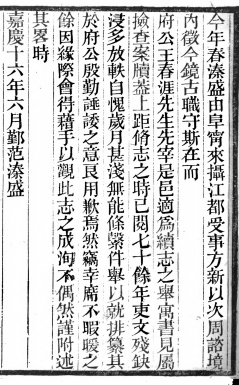 今年春溱盛由阜甯來攝江都受事方新以次周諮境
内徵今鏡古職守斯在而
府公王春涯先生先宰是邑適為續志之舉寓書見屬
撿查案牘蓋上距脩志之時已閱七十餘年吏文殘缺
浸多放軼自愧歲月甚淺無能條縏件舉以就排纂其
於府公殷勤諈諉之意良用歉焉然竊幸廁不暇暖之
餘因緣際會得藉手以觀此志之成洵不偶然謹附述
其畧時
嘉慶十六年六月鄞范溱盛